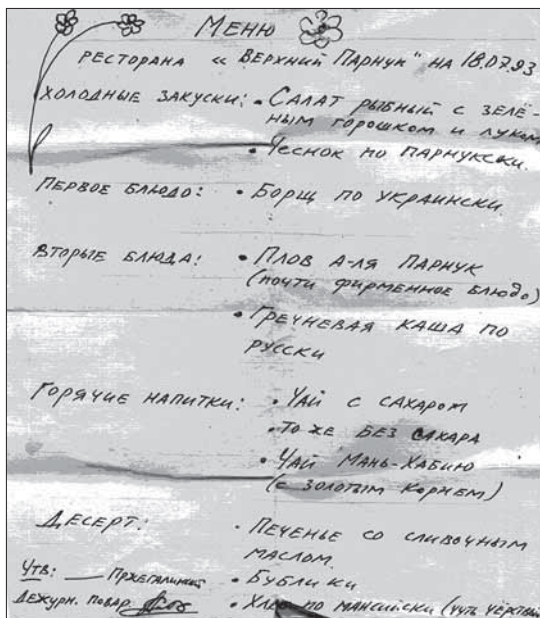 Меню
ресторана «Верхний Парнук" на 18.07.93
Холодные закуски: • Салат рыбный с зелё-
ным горошком и луком
• Чеснок по парнукски.
Первое блюдо: • Борщ по украински.
Вторые блюда: • Плов а-ля Парнук
(почти фирменное блюдо)
• Гречневая каша по
русски
Горячие напитки: • Чай с сахаром
• То же без сахара
• Чай Мань-Хабию
(с золотым корнем)
Десерт: • Печенье со сливочным
маслом.
• Бублики
• Хлеб по мансийски (чуть чёрствый
Утв:
Дежурн. повар